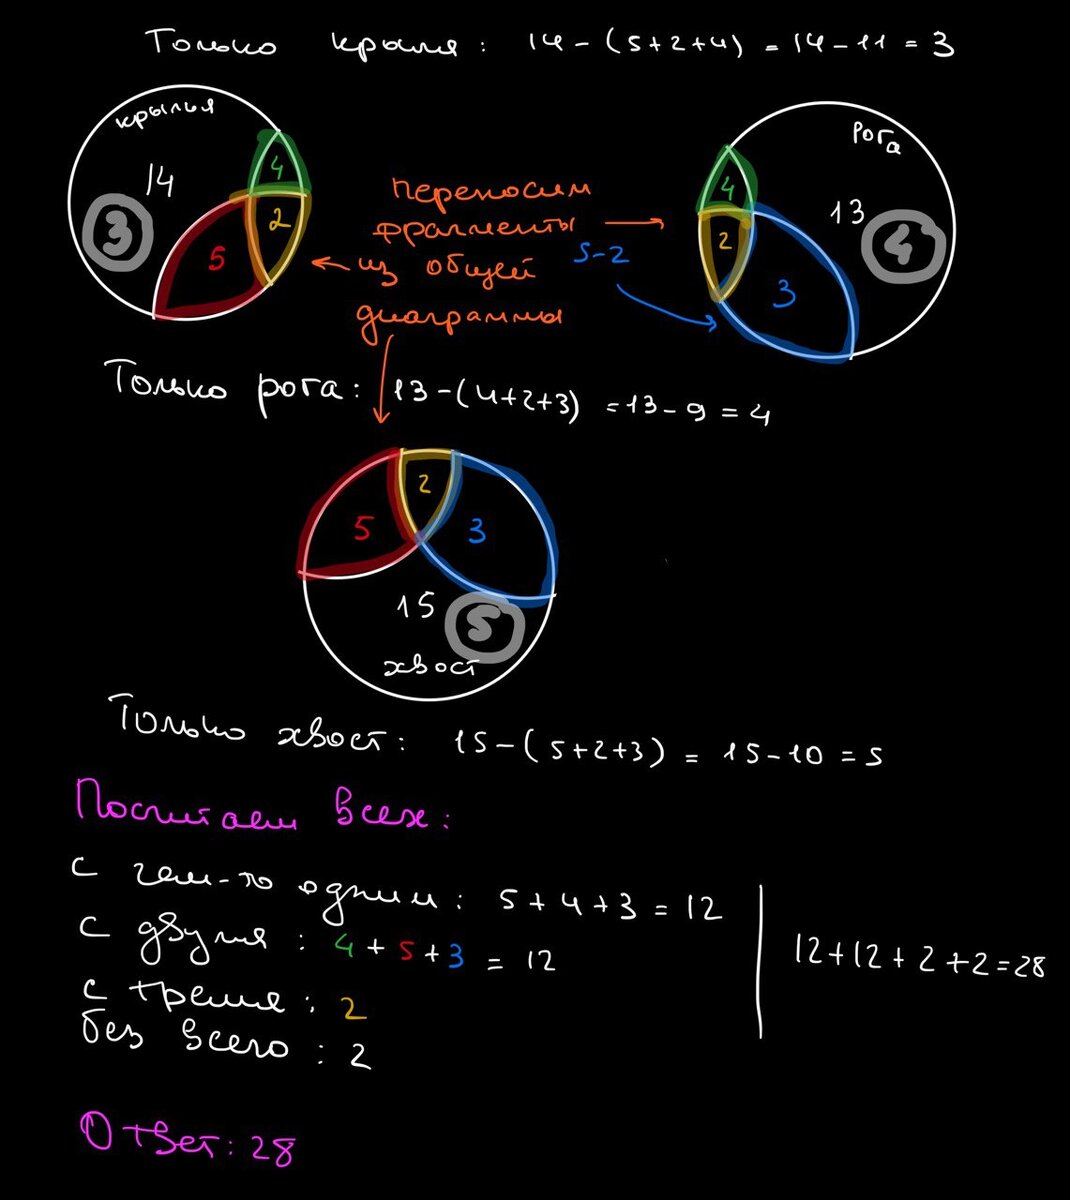 Только крылья: 14-(5+2+4)=14-11=3
крылья
14
3
4
2
5
переносим
фрагменты
из общей
диаграммы
5-2
Рога
13
4
4
2
3
Только рога: 13-(4+2+3)=13-9=4
5
2
3
15
5
хвост
Только хвост: 15-(5+2+3)=15-10=5
Посчитаем всех:
с чем-то одним: 5+4+3=12
с двумя: 4+5+3=12
с тремя: 2
без всего: 2
12+12+2+2=28
Ответ: 28